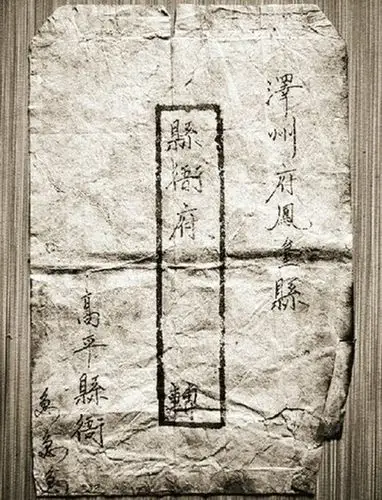 澤州府鳳臺縣
縣衙府　轉
高平縣衙